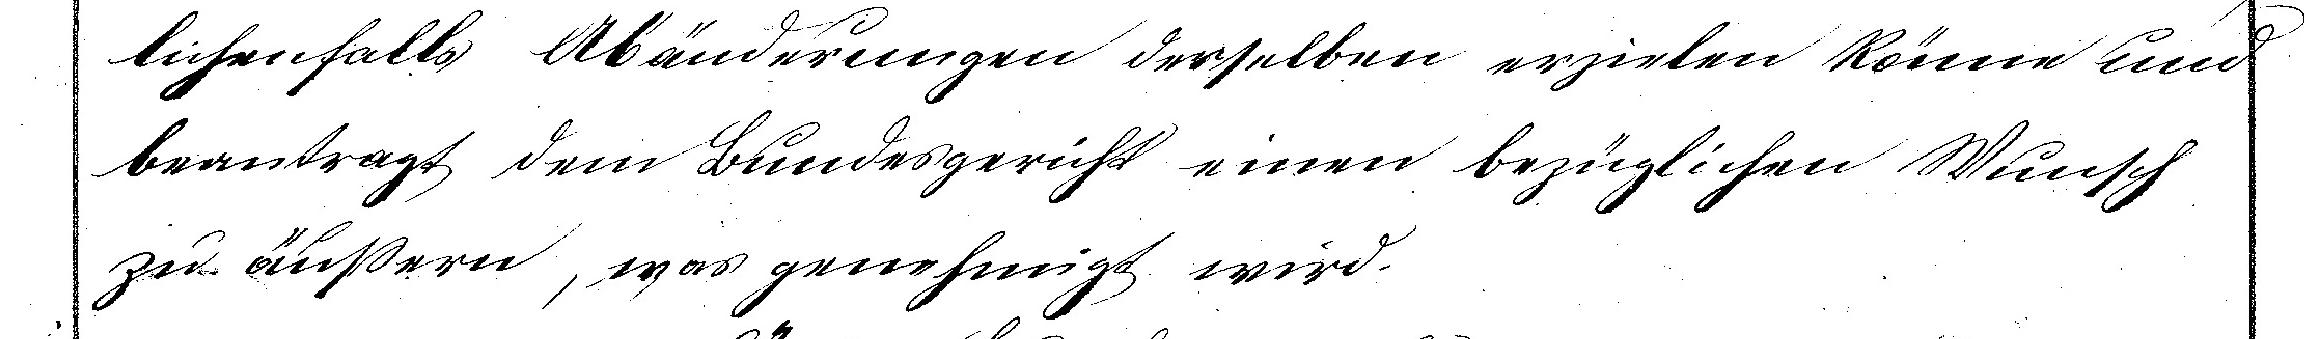 lichenfalls Abänderungen derselben erzielen könne und
beantragt dem Bundesgericht einen bezüglichen Wunsch
zu äußern, was genehmigt wird.